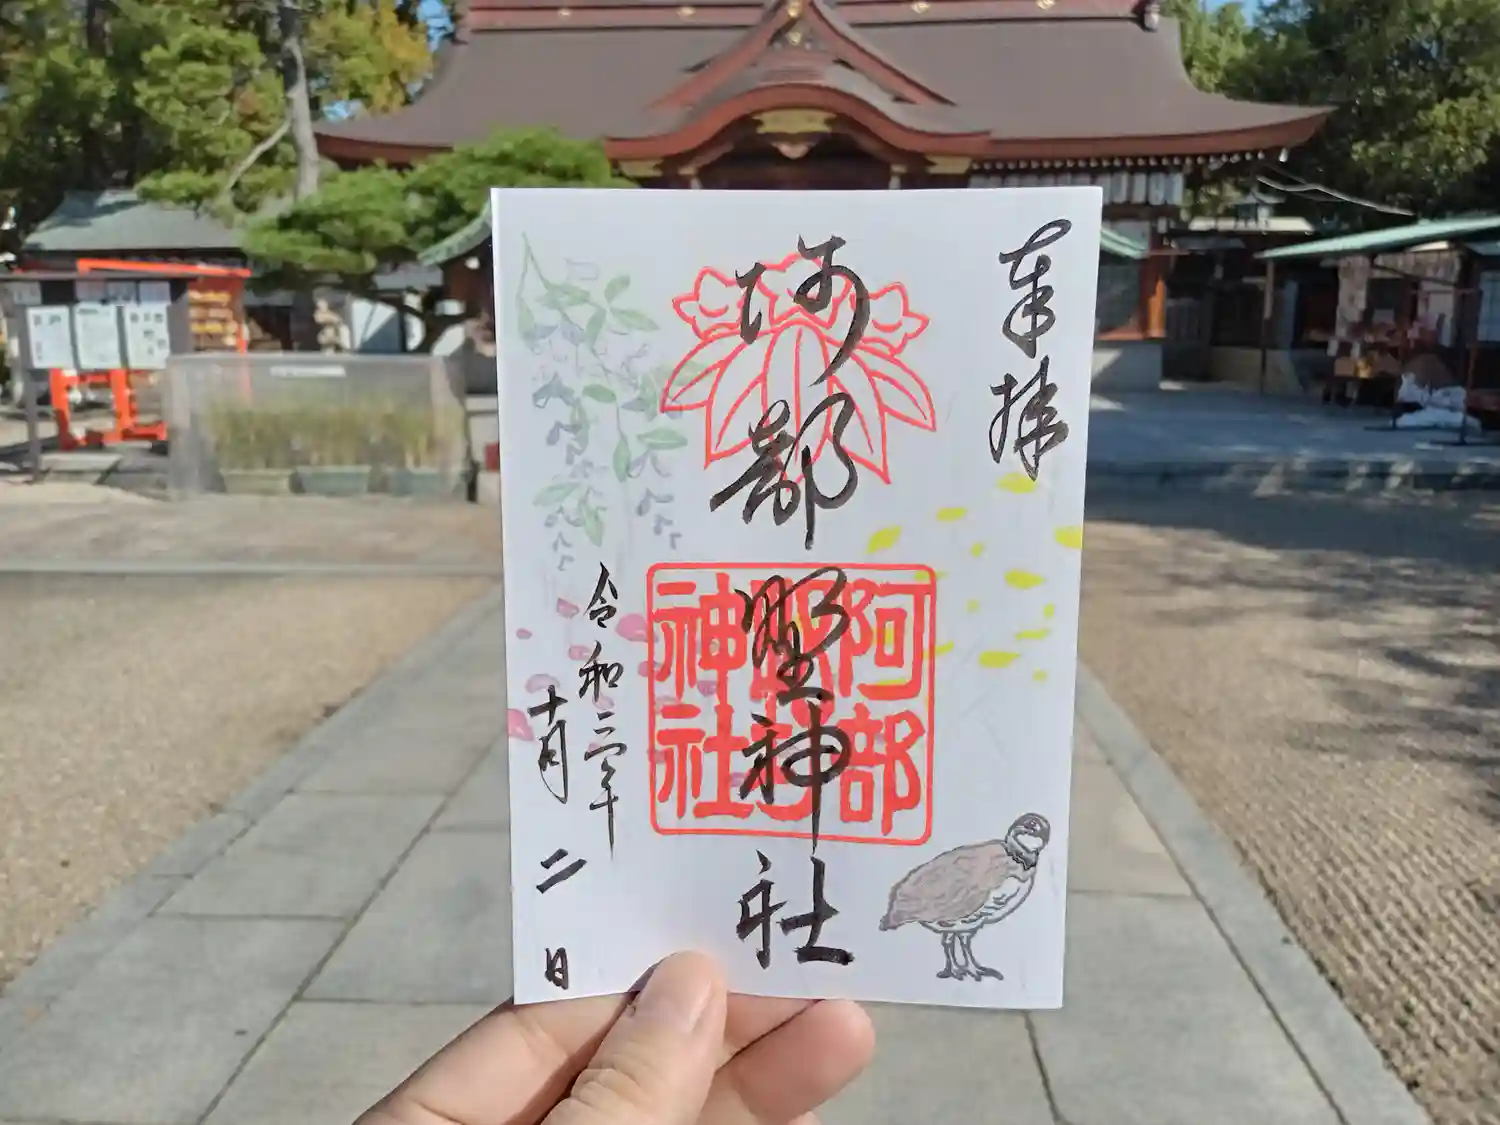 奉拝
阿部野神社
阿部
野
神社
令和三年
十月二日